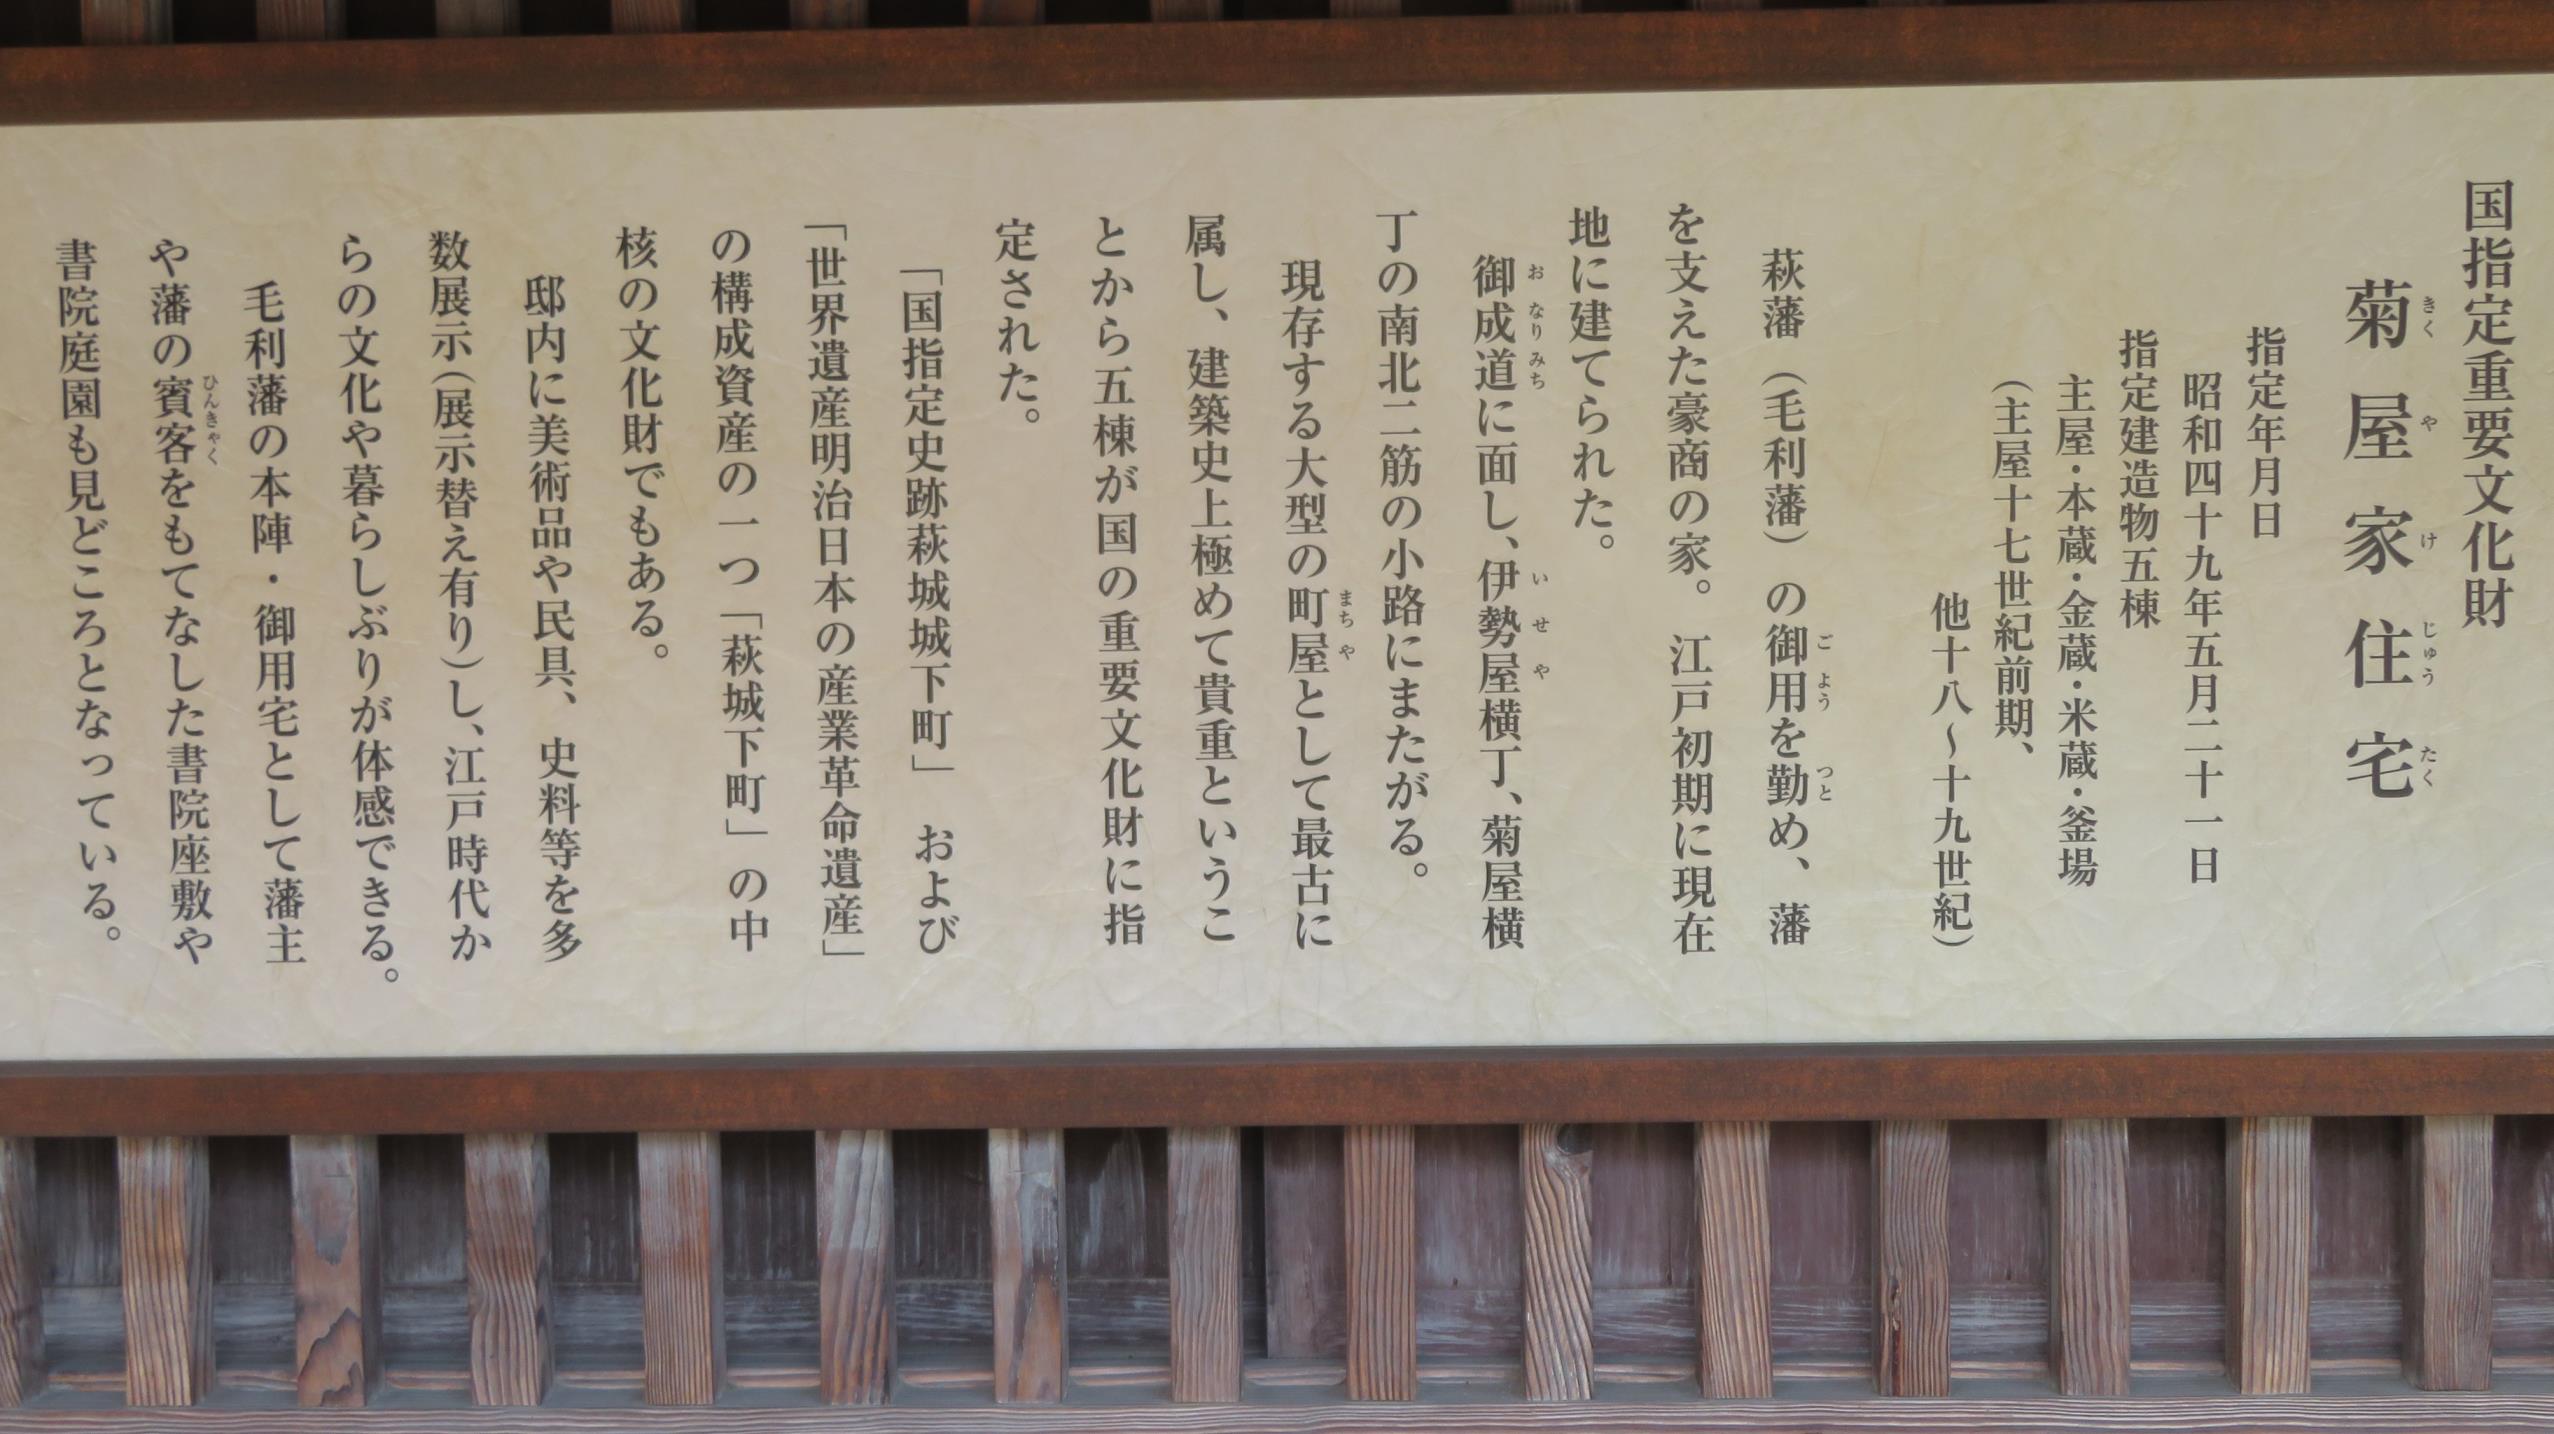 国指定重要文化財
菊屋家住宅
きくやけじゅうたく
指定年月日
昭和四十九年五月二十一日
指定建造物五棟
主屋・本蔵・金蔵・米蔵・釜場
(主屋十七世紀前期、
他十八~十九世紀)
萩藩(毛利藩)の御用を勤め、藩
ごよう つと
を支えた豪商の家。江戸初期に現在
地に建てられた。
御成道に面し、伊勢屋横丁、菊屋横
おなりみち いせや
丁の南北二筋の小路にまたがる。
現存する大型の町屋として最古に
まちや
属し、建築史上極めて貴重というこ
とから五棟が国の重要文化財に指
定された。
「国指定史跡萩城城下町」および
「世界遺産明治日本の産業革命遺産」
の構成資産の一つ「萩城下町」の中
核の文化財でもある。
邸内に美術品や民具、史料等を多
数展示(展示替え有り)し、江戸時代か
らの文化や暮らしぶりが体感できる。
毛利藩の本陣・御用宅として藩主
や藩の賓客をもてなした書院座敷や
ひんきゃく
書院庭園も見どころとなっている。